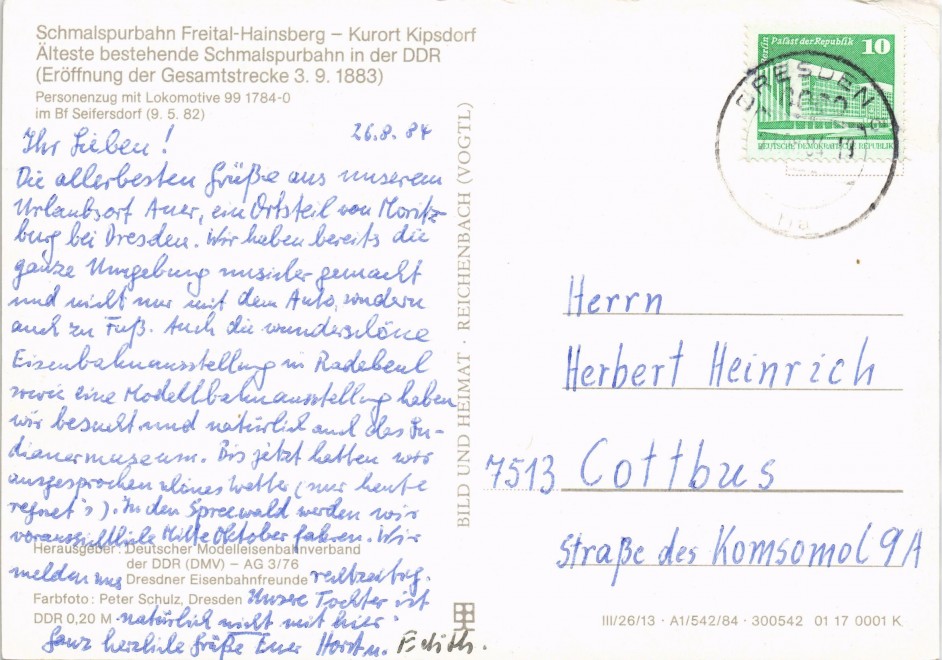 Schmalspurbahn Freital-Hainsberg – Kurort Kipsdorf
Älteste bestehende Schmalspurbahn in der DDR
(Eröffnung der Gesamtstrecke 3. 9. 1883)
Personenzug mit Lokomotive 99 1784-0
im Bf Seifersdorf (9. 5. 82)
26.8.84
Ihr Lieben!
Die allerbesten Grüße aus unserem
Urlaubsort Auer, ein Ortsteil von Moritz-
burg bei Dresden. Wir haben bereits die
ganze Umgebung unsicher gemacht
und nicht nur mit dem Auto, sondern
auch zu Fuß. Auch die wunderschöne
Eisenbahnausstellung in Radebeul
sowie eine Modellbahnausstellung haben
wir besucht und natürlich auch das In-
dianermuseum. Bis jetzt hatten wir
ausgesprochen schönes Wetter (nur heute
regnet's). In den Spreewald werden wir
voraussichtlich Mitte Oktober fahren. Wir
Herausgeber: Deutscher Modelleisenbahnverband
der DDR (DMV) – AG 3/76
melden uns Dresdner Eisenbahnfreunde rechtzeitig.
Farbfoto: Peter Schulz, Dresden Unsere Tochter ist
DDR 0,20 M natürlich nicht mit hier.
Ganz herzliche Grüße Euer Horst u. Edith.
BILD UND HEIMAT · REICHENBACH (VOGTL)
Berlin Palast der Republik 10
DEUTSCHE DEMOKRATISCHE REPUBLIK
DRESDEN
Herrn
Herbert Heinrich
7513 Cottbus
Straße des Komsomol 9A
III/26/13 · A1/542/84 · 300542 01 17 0001 K